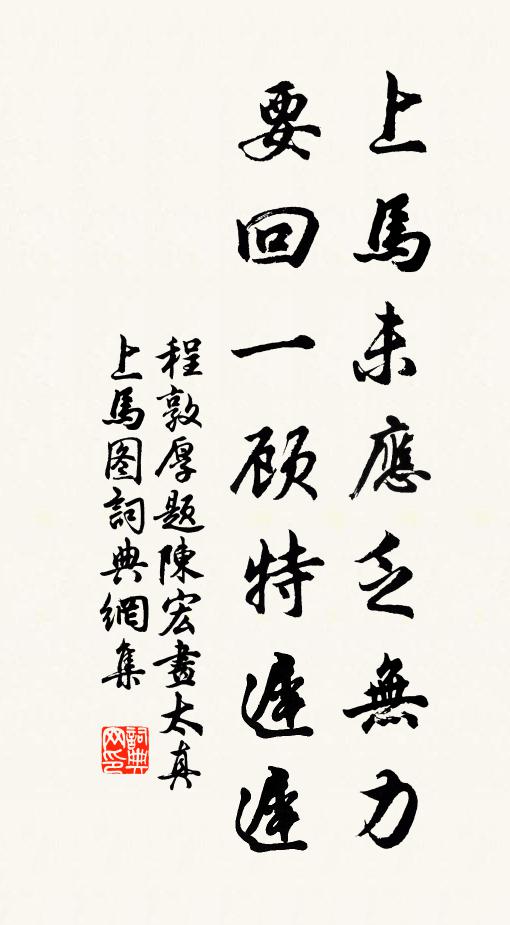 上馬未應乏無力
要回一顾特遲遲
程敦厚题陳宏畫太真
上馬图詞典網集
詞典网印